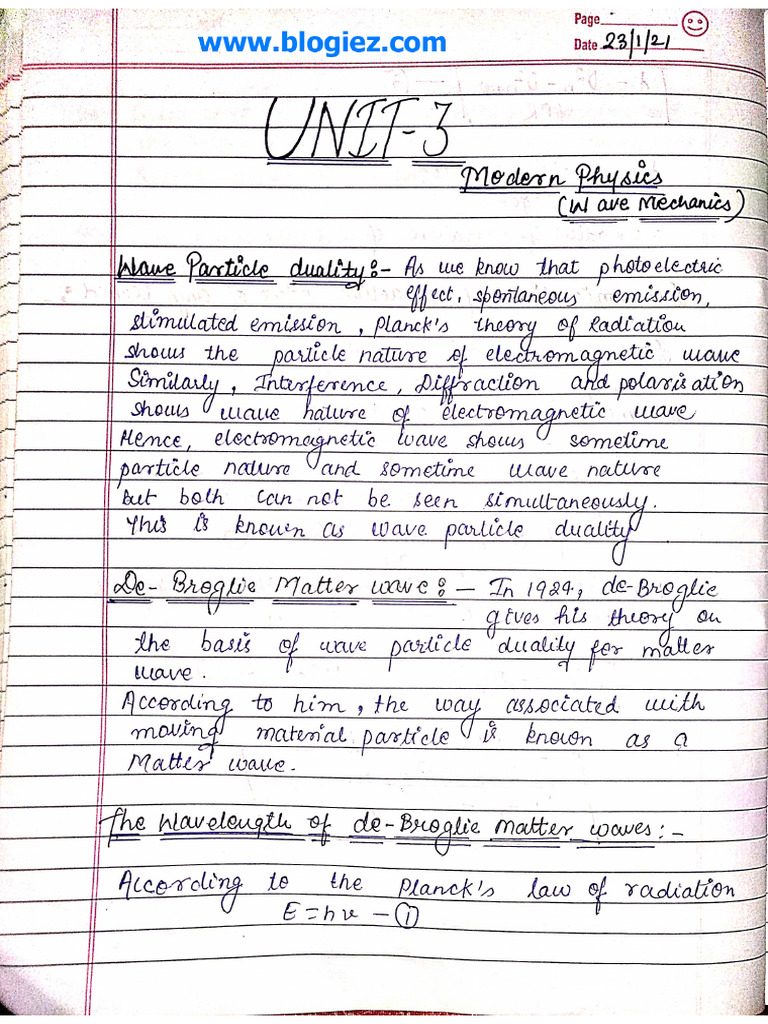 Page
www.blogiez.com
Date 23/1/21
UNIT-3
Modern Physics
(Wave Mechanics)
Wave Particle duality:- As we know that photoelectric
effect, spontaneous emission,
stimulated emission, Planck's theory of Radiation
shows the particle nature of electromagnetic wave
Similarly, Interference, Diffraction and polarisation
shows wave nature of electromagnetic wave
Hence, electromagnetic wave shows sometime
particle nature and sometime wave nature
but both can not be seen simultaneously.
This is known as wave particle duality
De-Broglie Matter wave:- In 1924, de-Broglie
gives his theory on
the basis of wave particle duality for matter
wave.
According to him, the way associated with
moving material particle is known as a
Matter wave.
The Wavelength of de-Broglie matter waves:-
According to the Planck's law of radiation
E=hν - ①